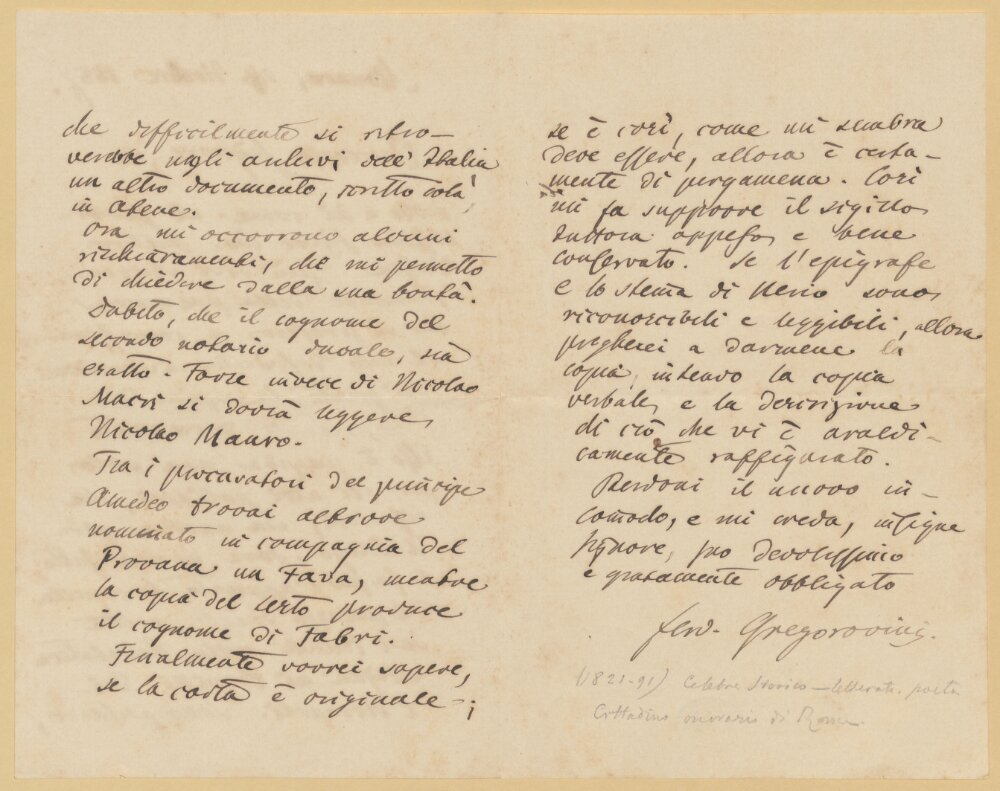 che difficilmente si ritro-
verebbe negli archivi dell' Italia
un altro documento, scritto colà,
in Atene.
Ora mi occorrono alcuni
rischiaramenti, che mi permetto
di chiedere dalla sua bontà.
Dubito, che il cognome del
secondo notario ducale, sia
esatto. Forse invece di Nicolao
Macri si dovrà leggere
Nicolao Mauro.
Tra i procuratori del principe
Amedeo trovai altrove
nominato in compagnia del
Provana un Fava, mentre
la copia del testo produce
il cognome di Fabri.
Finalmente vorrei sapere,
se la carta è originale -;
se è così, come mi sembra
deve essere, allora è certa-
mente di pergamena. Così
mi fa supporre il sigillo
tuttora appeso e bene
conservato. Se l'epigrafe
e lo stema di Nerio sono
riconoscibili e leggibili, allora
pregherei a darmene la
copia, intendo la copia
verbale, e la descrizione
di ciò che vi è araldi-
camente raffigurato.
Perdoni il nuovo in-
comodo, e mi creda, insigne
Signore, suo devotissimo
e gratamente obbligato
Ferd. Gregorovius.
(1821-91) Celebre storico - letterato. poeta
Cittadino onorario di Roma.